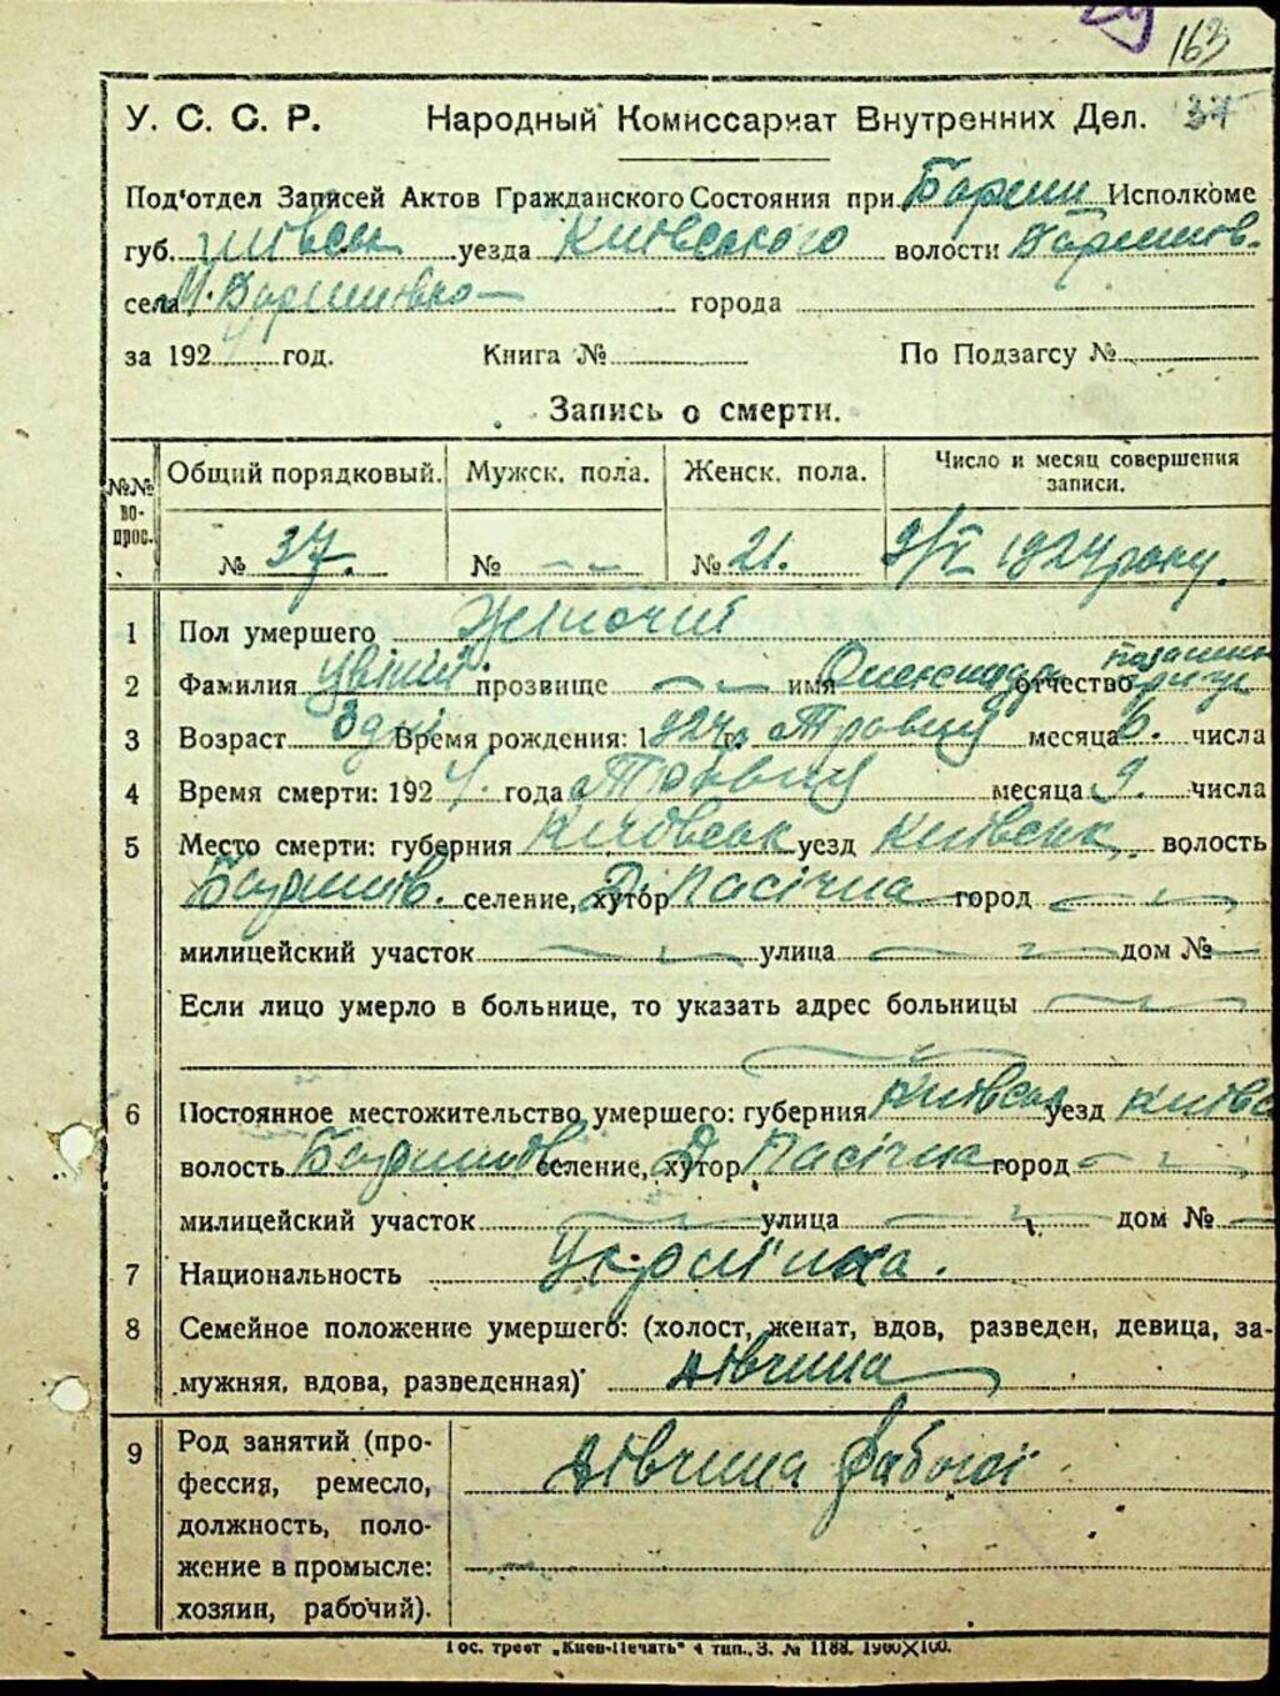 163
У. С. С. Р. Народный Комиссариат Внутренних Дел. 37
Под'отдел Записей Актов Гражданского Состояния при Исполкоме
губ. уезда Київського волости Баришів.
села М. Баришівка города
за 1924 год. Книга № По Подзагсу №
Запись о смерти.
№№ вопрос. Общий порядковый. Мужск. пола. Женск. пола. Число и месяц совершения записи.
№ 37. № № 21. 9/V 1924 року.
1 Пол умершего Жіночий
2 Фамилия прозвище имя отчество
3 Возраст 3 дні Время рождения: 1924 г. Травня месяца 6. числа
4 Время смерти: 1924. года Травня месяца 9. числа
5 Место смерти: губерния уезд Київськ. волость
Баришів. селение, хутор Д. Пасічна город
милицейский участок улица дом №
Если лицо умерло в больнице, то указать адрес больницы
6 Постоянное местожительство умершего: губерния Київськ уезд Київс
волость Баришів селение, хутор Д. Пасічна город
милицейский участок улица дом №
7 Национальность Українка.
8 Семейное положение умершего: (холост, женат, вдов, разведен, девица, за-
мужняя, вдова, разведенная) дівчина
9 Род занятий (про-
фессия, ремесло,
должность, поло-
жение в промысле:
хозяин, рабочий).
дівчина
Гос. трест „Киев-Печать" 4 тип., З. № 1188. 1900×100.